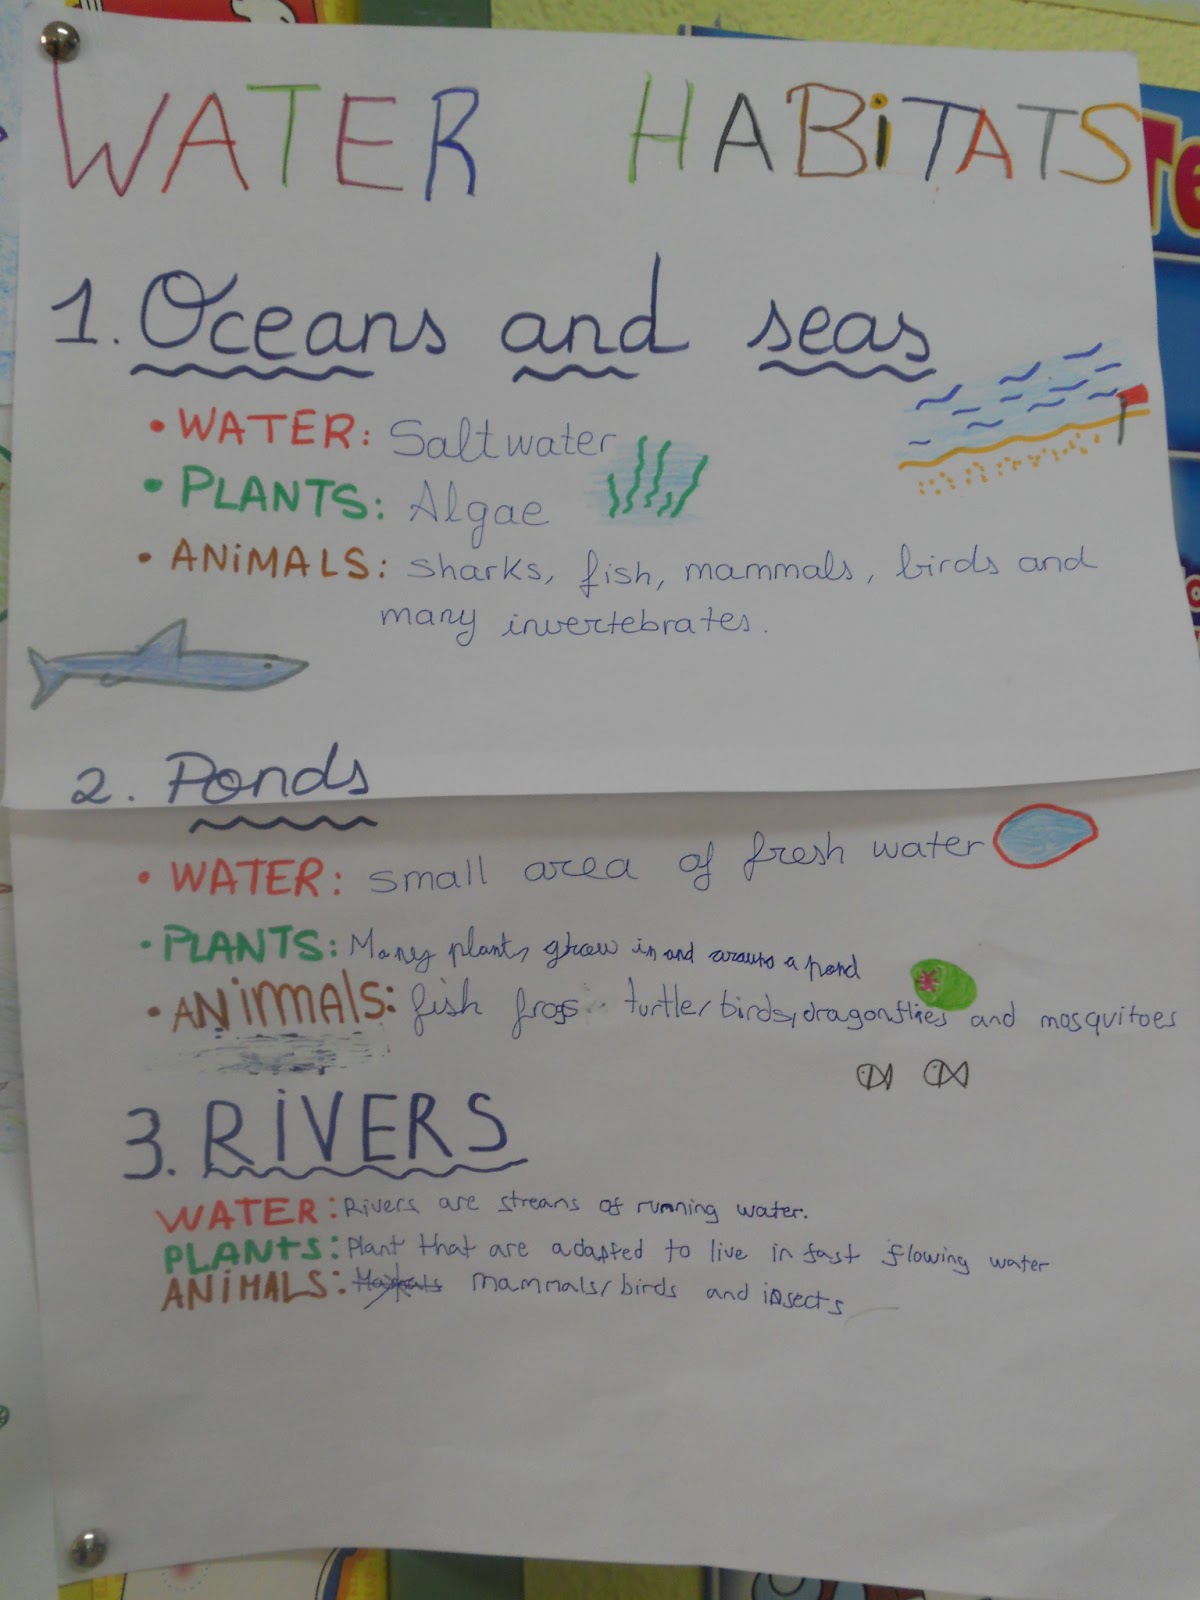 WATER HABiTATS
Te
1. Oceans and seas
• WATER: Saltwater
• PLANTS: Algae
• ANiMALS: sharks, fish, mammals, birds and
many invertebrates.
2. Ponds
• WATER: small area of fresh water
• PLANTS: Many plants grow in and a pond
• ANiMALS: fish frogs turtle/birds,dragonflies and mosquitoes
3. RiVERS
WATER: Rivers are streans of running water.
PLANTS: Plant that are adapted to live in fast flowing water
ANiMALS: mammals/birds and insects